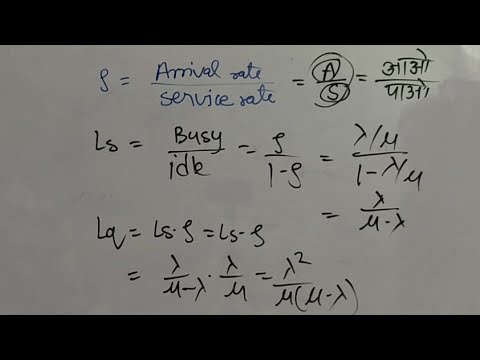 ρ = Arrival rate / service rate = A / S = आओ / पाओ
Ls = Busy / idle = ρ / 1-ρ = λ/μ / 1-λ/μ
= λ / μ-λ
Lq = Ls·ρ = Ls-ρ
= λ / μ-λ · λ / μ = λ² / μ(μ-λ)